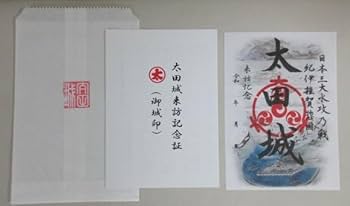 太
太田城来訪記念証
(御城印)
日本三大水攻乃戦
紀伊雑賀惣国
太田城
来訪記念
令和 年 月 日